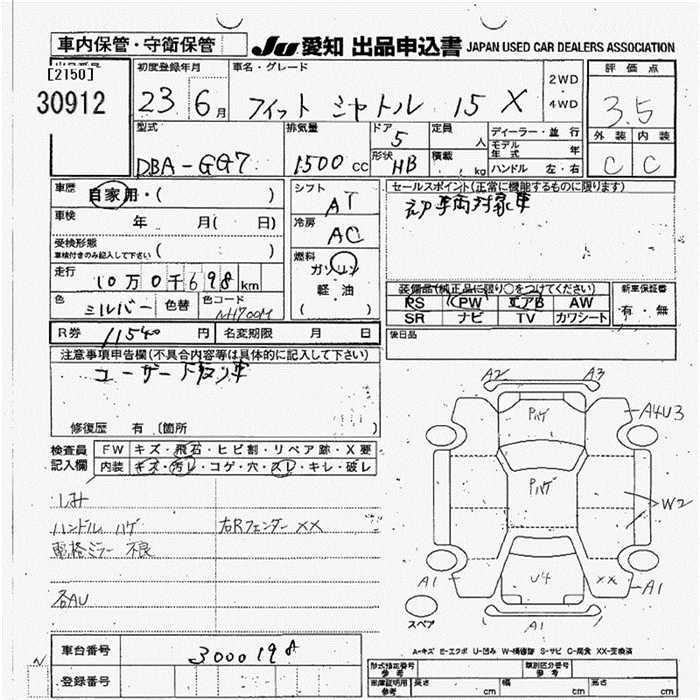 車内保管・守衛保管 JU 愛知 出品申込書 JAPAN USED CAR DEALERS ASSOCIATION
[2150]
30912
初度登録年月 23 6月
車名・グレード フィット シャトル 15 X
2WD・4WD
評価点 3.5
外装 内装
C C
型式 DBA-GG7
排気量 1500 cc
ドア 5
形状 HB
定員 人
積載 kg
ディーラー・並行
モデル年式 年
ハンドル 左・右
車歴 自家用・( )
車検 年 月( 日)
受検形態 ( )
車検付きのみ記入して下さい
走行 10万0千698km
色 シルバー 色替 色コード NH700M
シフト AT
冷房 AC
燃料 ガソリン
軽・油
( )
セールスポイント(正常に機能するものに限ります)
装備品(純正品に限り○をつけてください)
PS PW エアB AW
SR ナビ TV カワシート
新車保証書
有・無
R券 11540 円 名変期限 月 日
後日品
注意事項申告欄(不具合内容等は具体的に記入して下さい)
ユーザー下取り車
修復歴 有 〔箇所
検査員記入欄
FW キズ・飛石・ヒビ割・リペア跡・X要
内装 キズ・汚レ・コゲ・穴・スレ・キレ・破レ
しみ
ハンドル ハゲ 右Rフェンダー XX
電格ミラー 不良
各AU
A2 A3
A4U3
W2
A1 U4 XX A1
A1
スペア
A-キズ E-エクボ U-凹み W-補修跡 S-サビ C-腐食 XX-交換済
車台番号 3000198
登録番号
型式指定番号 参考
類別区分番号 参考
車庫証明用 参考 長さ cm 幅 cm 高さ cm